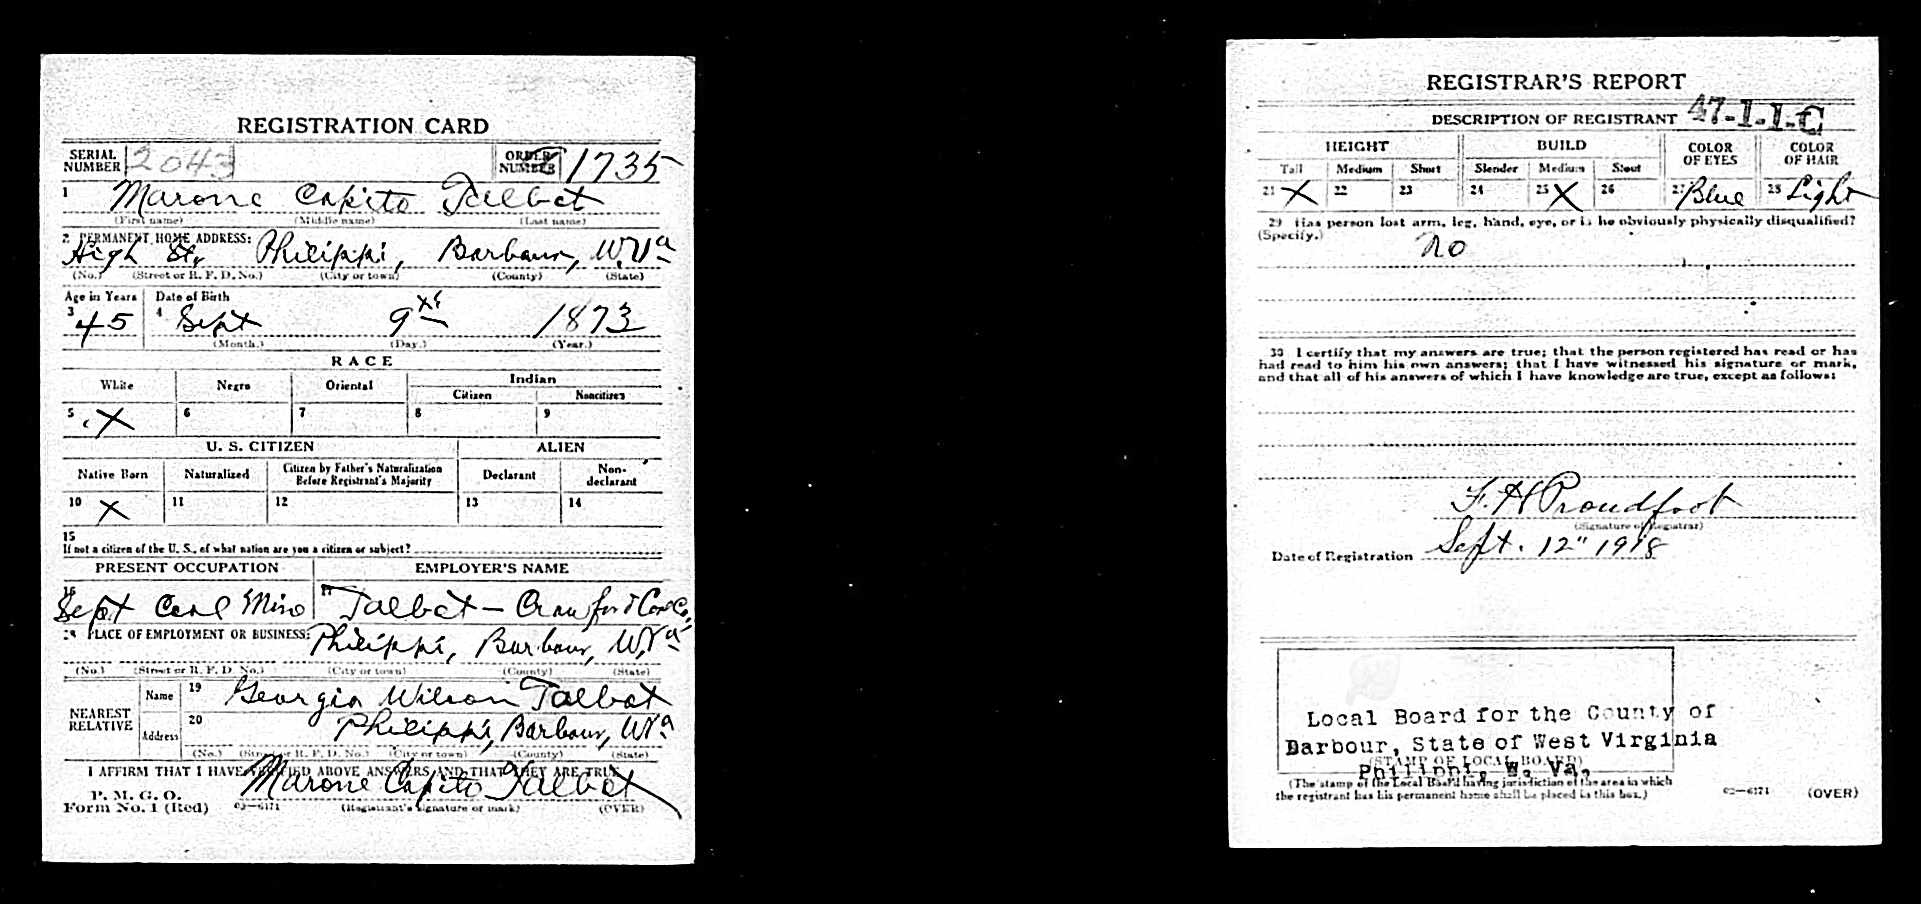 REGISTRATION CARD
SERIAL NUMBER 2043 ORDER NUMBER 1735
1 Marone Capito Talbot
(First name) (Middle name) (Last name)
2 PERMANENT HOME ADDRESS:
High St, Philippi, Barbour, W.Va
(No.) (Street or R. F. D. No.) (City or town) (County) (State)
Age in Years Date of Birth
3 45 4 Sept 9th 1873
(Month.) (Day.) (Year.)
RACE
White Negro Oriental Indian
Citizen Noncitizen
5 X 6 7 8 9
U. S. CITIZEN ALIEN
Native Born Naturalized Citizen by Father's Naturalization Before Registrant's Majority Declarant Non-declarant
10 X 11 12 13 14
15
If not a citizen of the U. S., of what nation are you a citizen or subject?
PRESENT OCCUPATION EMPLOYER'S NAME
16 Supt Coal Mine 17 Talbot - Crawford Coal Co.
18 PLACE OF EMPLOYMENT OR BUSINESS:
Philippi, Barbour, W.Va
(No.) (Street or R. F. D. No.) (City or town) (County) (State)
NEAREST RELATIVE
Name 19 Georgia Wilson Talbot
Address 20 Philippi, Barbour, WVa
(No.) (Street or R. F. D. No.) (City or town) (County) (State)
I AFFIRM THAT I HAVE VERIFIED ABOVE ANSWERS AND THAT THEY ARE TRUE
P. M. G. O.
Form No. 1 (Red) 03—6171 Marone Capito Talbot
(Registrant's signature or mark) (OVER)
REGISTRAR'S REPORT
47-1-1-C
DESCRIPTION OF REGISTRANT
HEIGHT BUILD COLOR OF EYES COLOR OF HAIR
Tall Medium Short Slender Medium Stout
21 X 22 23 24 25 X 26 27 Blue 28 Light
29 Has person lost arm, leg, hand, eye, or is he obviously physically disqualified?
(Specify.) no
30 I certify that my answers are true; that the person registered has read or has
had read to him his own answers; that I have witnessed his signature or mark,
and that all of his answers of which I have knowledge are true, except as follows:
F. H Proudfoot
(Signature of Registrar)
Date of Registration Sept. 12" 1918
Local Board for the County of
Barbour, State of West Virginia
(STAMP OF LOCAL BOARD)
Philippi, W. Va.
(The stamp of the Local Board having jurisdiction of the area in which
the registrant has his permanent home shall be placed in this box.)
03—6171 (OVER)